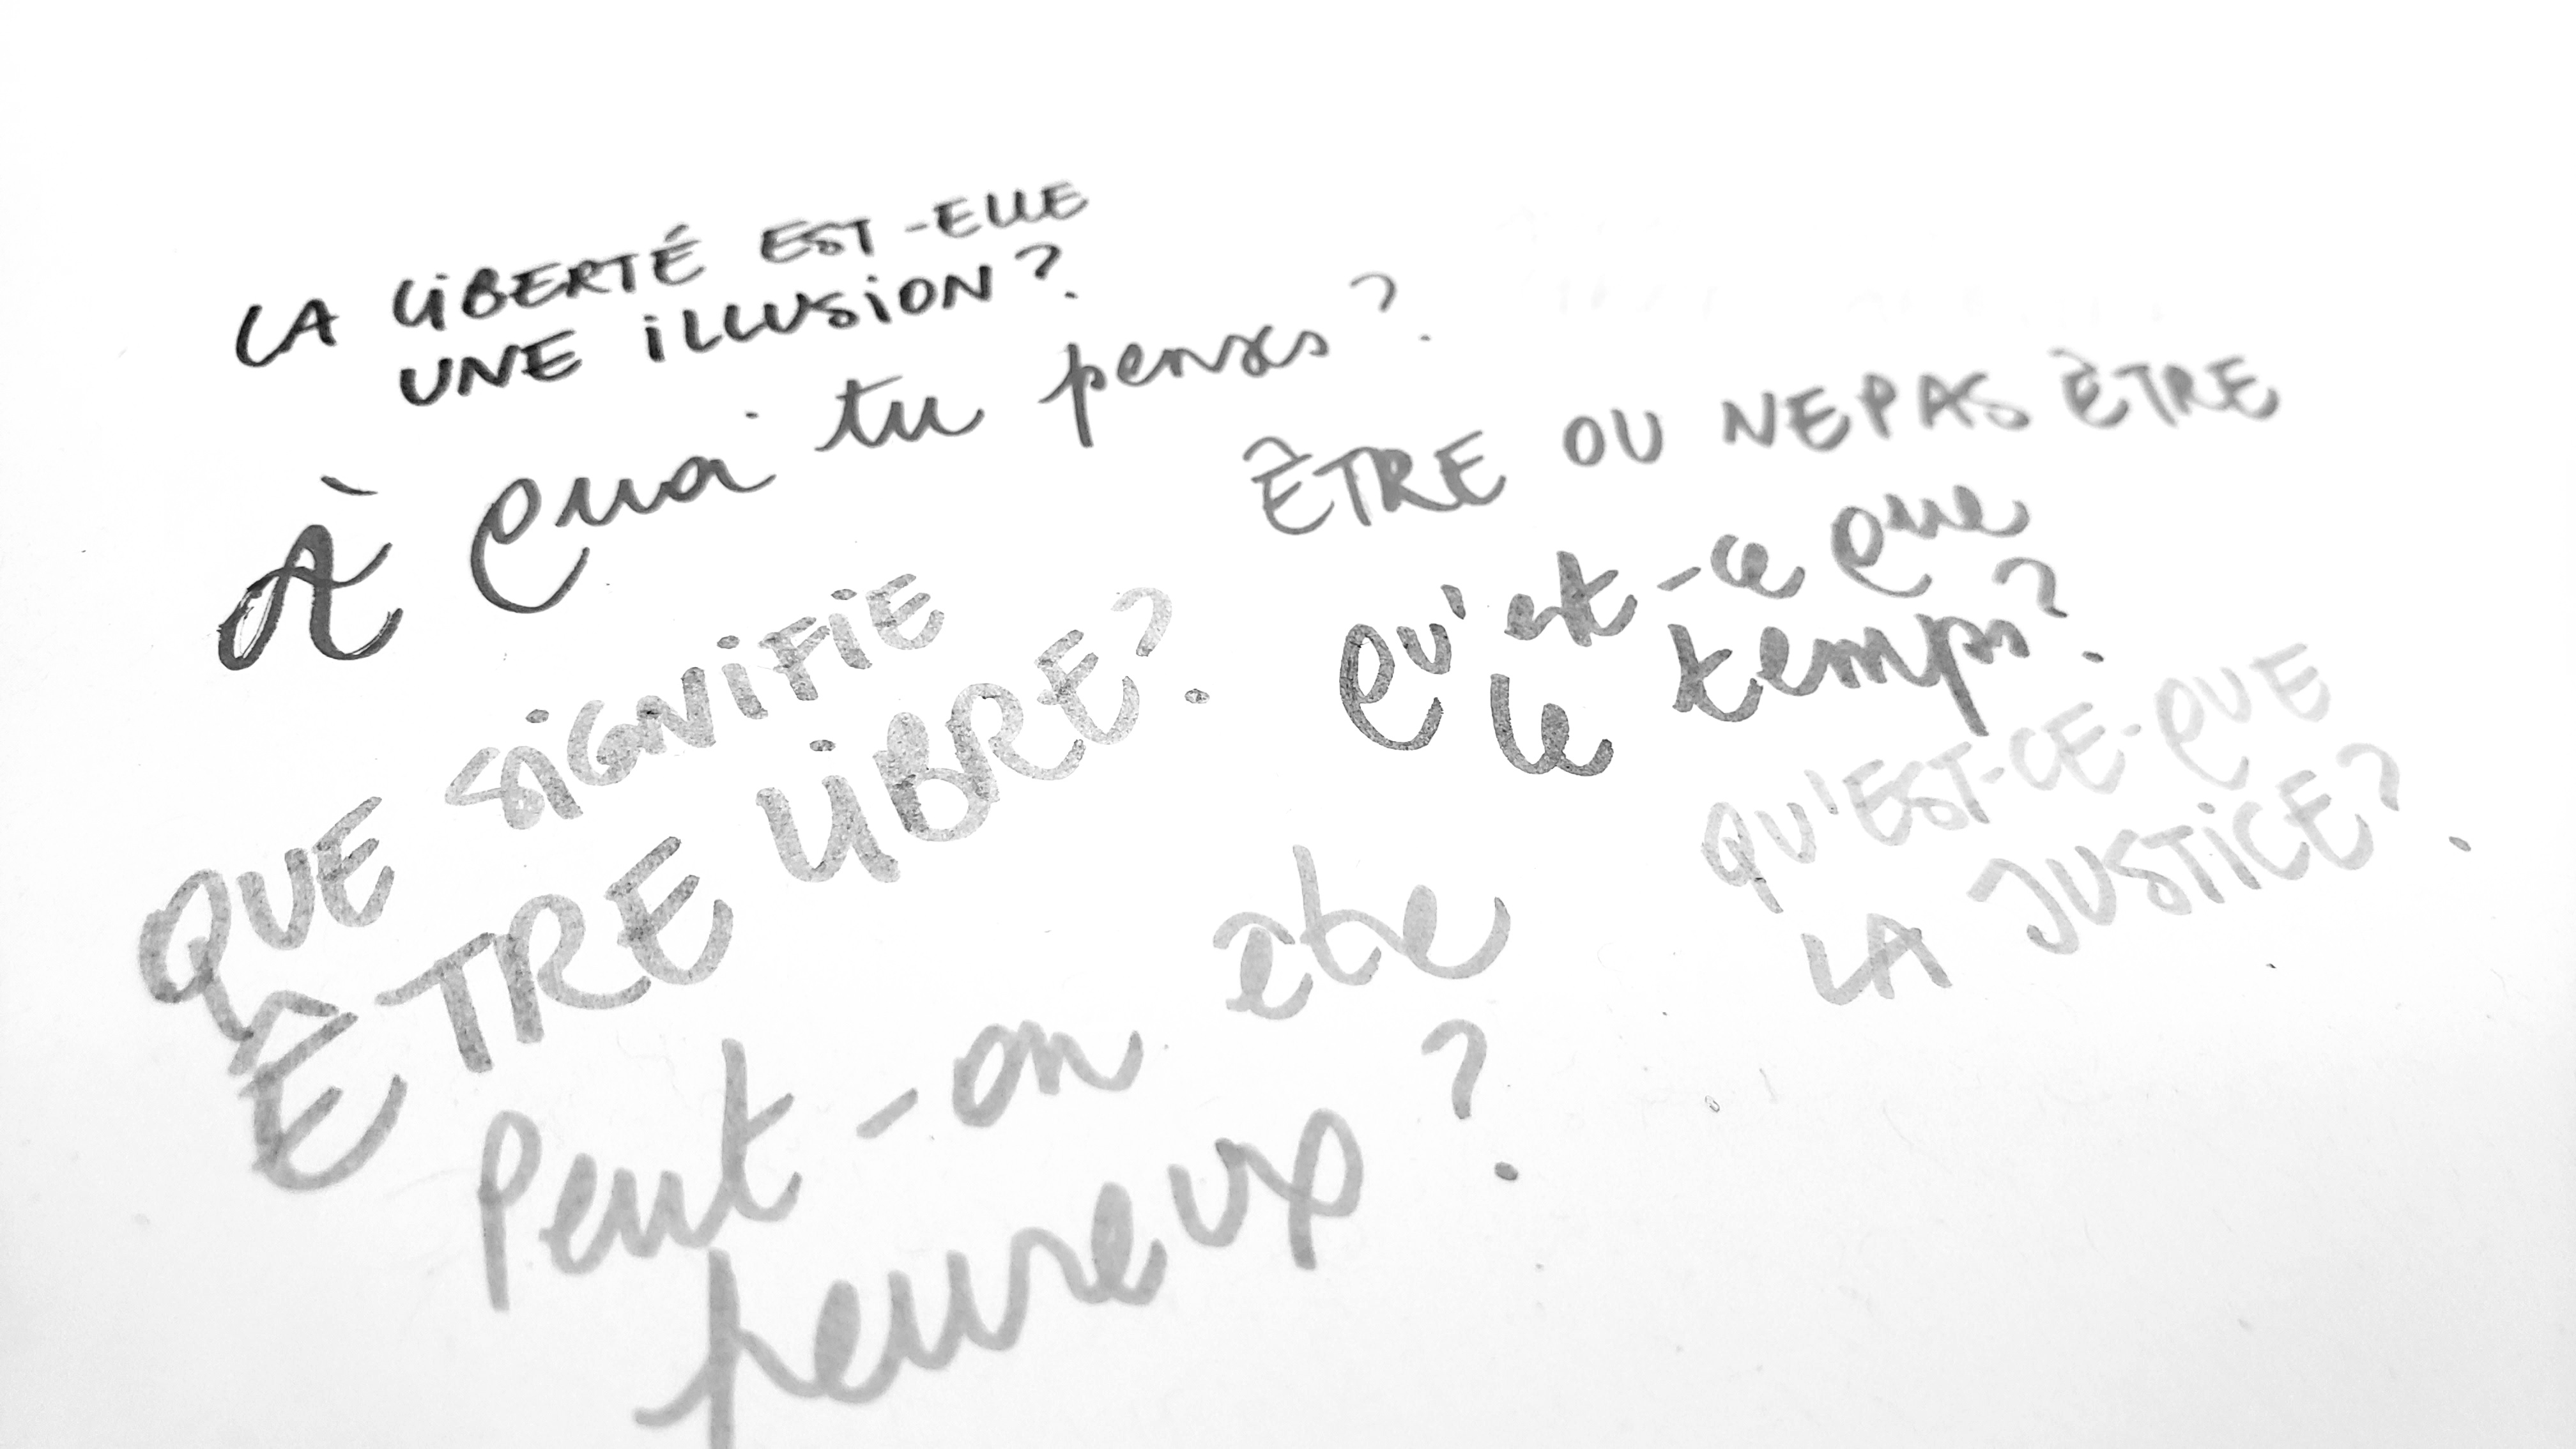 LA LIBERTÉ EST-ELLE
UNE ILLUSION ?
À quoi tu penses ?
ÊTRE OU NE PAS ÊTRE
Qu'est-ce que
le temps ?
QUE SIGNIFIE
ÊTRE LIBRE ?
QU'EST-CE-QUE
LA JUSTICE ?
Peut-on être
heureux ?